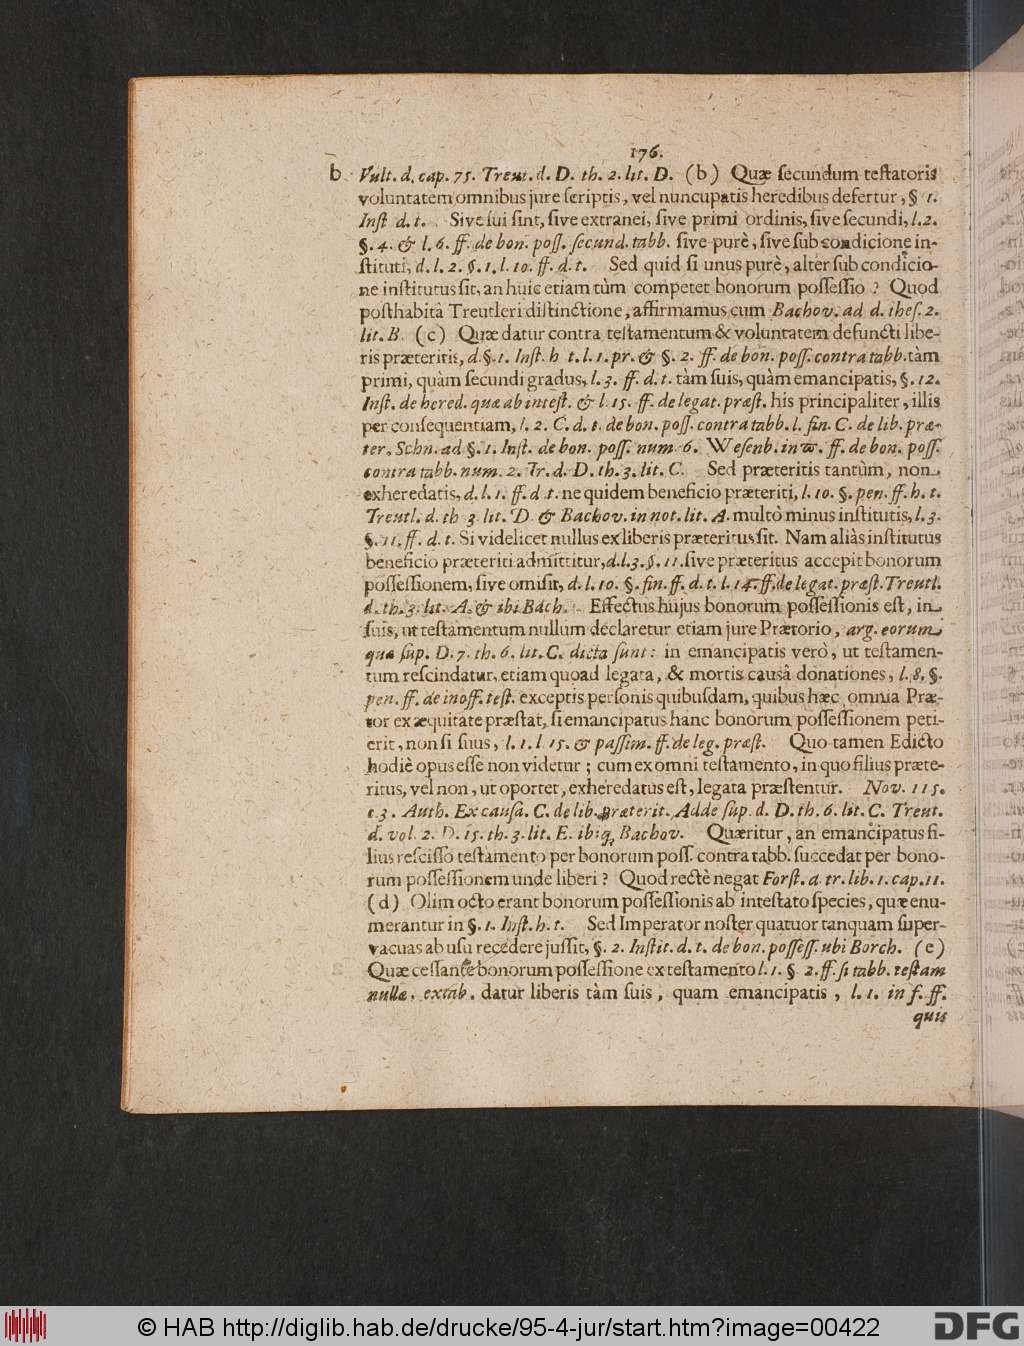 176.
b. Vult. d. cap. 75. Treut. d. D. th. 2. lit. D. (b) Quæ ſecundum teſtatoris
voluntatem omnibus jure ſcriptis, vel nuncupatis heredibus defertur, § 1.
Inſt d. t. Sive ſui ſint, ſive extranei, ſive primi ordinis, ſive ſecundi, l. 2.
§. 4. & l. 6. ff. de bon. poſſ. ſecund. tabb. ſive purè, ſive ſub condicione in-
ſtituti, d. l. 2. §. 1. l. 10. ff. d. t. Sed quid ſi unus purè, alter ſub condicio-
ne inſtitutus ſit, an huic etiam tùm competet bonorum poſſeſſio? Quod
poſthabitâ Treutleri diſtinctione, affirmamus cum Bachov. ad d. theſ. 2.
lit. B. (c) Quæ datur contra teſtamentum & voluntatem defuncti libe-
ris præteritis, d. §. 1. Inſt. h t. l. 1. pr. & §. 2. ff. de bon. poſſ. contra tabb. tàm
primi, quàm ſecundi gradus, l. 3. ff. d. t. tàm ſuis, quàm emancipatis, §. 12.
Inſt. de hered. quæ ab inteſt. & l. 15. ff. de legat. præſt. his principaliter, illis
per conſequentiam, l. 2. C. d. t. de bon. poſſ. contra tabb. l. fin. C. de lib. præ-
ter. Schn. ad §. 1. Inſt. de bon. poſſ. num. 6. Weſenb. in ϖ. ff. de bon. poſſ.
contra tabb. num. 2. Tr. d. D. th. 3. lit. C. Sed præteritis tantùm, non
exheredatis, d. l. 1. ff. d t. ne quidem beneficio præteriti, l. 10. §. pen. ff. h. t.
Treutl. d. th 3. lit. D & Bachov. in not. lit. A. multò minus inſtitutis, l. 3.
§. 11. ff. d. t. Si videlicet nullus ex liberis præteritus ſit. Nam aliàs inſtitutus
beneficio præteriti admittitur, d. l. 3. §. 11. ſive præteritus accepit bonorum
poſſeſſionem, ſive omiſit, d. l. 10. §. fin. ff. d. t. l. 14. ff. de legat. præſt. Treutl.
d. th. 3. lit. A. & ibi Bach. Effectus hujus bonorum poſſeſſionis eſt, in
ſuis, ut teſtamentum nullum declaretur etiam jure Prætorio, arg. eorum
quæ ſup. D. 7. th. 6. lit. C. dicta ſunt: in emancipatis verò, ut teſtamen-
tum reſcindatur, etiam quoad legata, & mortis causâ donationes, l. 8, §.
pen. ff. de inoff. teſt. exceptis perſonis quibuſdam, quibus hæc omnia Præ-
tor ex æquitate præſtat, ſi emancipatus hanc bonorum poſſeſſionem peti-
erit, non ſi ſuus, l. 1. l 15. & paſſim. ff. de leg. præſt. Quo tamen Edicto
hodiè opus eſſe non videtur; cum ex omni teſtamento, in quo filius præte-
ritus, vel non, ut oportet, exheredatus eſt, legata præſtentur. Nov. 115.
c 3. Auth. Ex cauſa. C. de lib. præterit. Adde ſup. d. D. th. 6. lit. C. Treut.
d. vol. 2. D. 15. th. 3. lit. E. ibiq; Bachov. Quæritur, an emancipatus fi-
lius reſciſſo teſtamento per bonorum poſſ. contra tabb. ſuccedat per bono-
rum poſſeſſionem unde liberi? Quod rectè negat Forſt. a. tr. lib. 1. cap. 11.
(d) Olim octo erant bonorum poſſeſſionis ab inteſtato ſpecies, quæ enu-
merantur in §. 1. Inſt. h. t. Sed Imperator noſter quatuor tanquam ſuper-
vacuas ab uſu recedere juſſit, §. 2. Inſtit. d. t. de bon. poſſeſſ. ubi Borch. (e)
Quæ ceſſante bonorum poſſeſſione ex teſtamento l. 1. § 2. ff. ſi tabb. teſtam
nullæ. extab. datur liberis tàm ſuis, quam emancipatis, l. 1. in f. ff.
quis
© HAB http://diglib.hab.de/drucke/95-4-jur/start.htm?image=00422
DFG